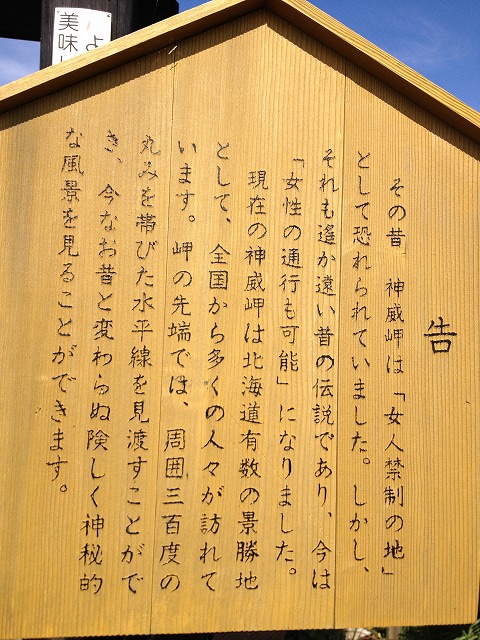 告
その昔、神威岬は「女人禁制の地」
として恐れられていました。しかし、
それも遙か遠い昔の伝説であり、今は
「女性の通行も可能」になりました。
現在の神威岬は北海道有数の景勝地
として、全国から多くの人々が訪れて
います。岬の先端では、周囲三百度の
丸みを帯びた水平線を見渡すことがで
き、今なお昔と変わらぬ険しく神秘的
な風景を見ることができます。
よ
美味